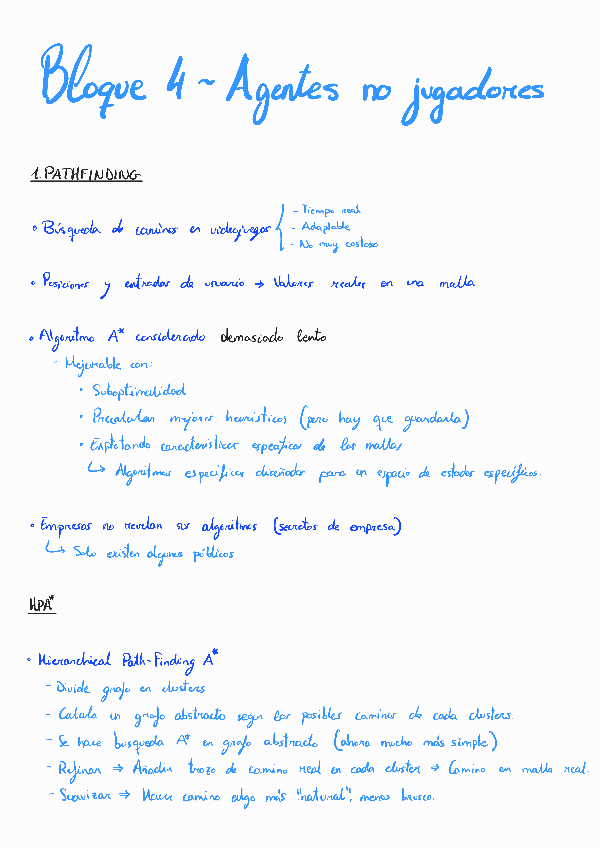 Bloque 4 ~ Agentes no jugadores
1. PATHFINDING
• Búsqueda de caminos en videojuegos
- Tiempo real
- Adaptable
- No muy costoso
• Posiciones y entradas de usuario → Valores reales en una malla
• Algoritmo A* considerado demasiado lento
- Mejorable con:
• Suboptimalidad
• Precalcular mejores heurísticos (pero hay que guardarla)
• Explotando características específicas de las mallas
↳ Algoritmos específicos diseñados para un espacio de estados específicos.
• Empresas no revelan sus algoritmos (secretos de empresa)
↳ Solo existen algunos públicos
HPA*
• Hierarchical Path-Finding A*
- Divide grafo en clusters
- Calcula un grafo abstracto segun los posibles caminos de cada clusters.
- Se hace busqueda A* en grafo abstracto (ahora mucho más simple)
- Refinar ⇒ Añadir trozo de camino real en cada cluster → Camino en malla real.
- Suavizar ⇒ Hacer camino algo más "natural", menos brusco.